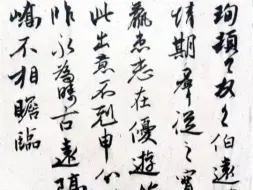 珣頓〻首〻伯遠
情期羣從之寶
羸患志在優遊始
此出意不剋申分
昨永為疇古遠隔
嶠不相瞻臨